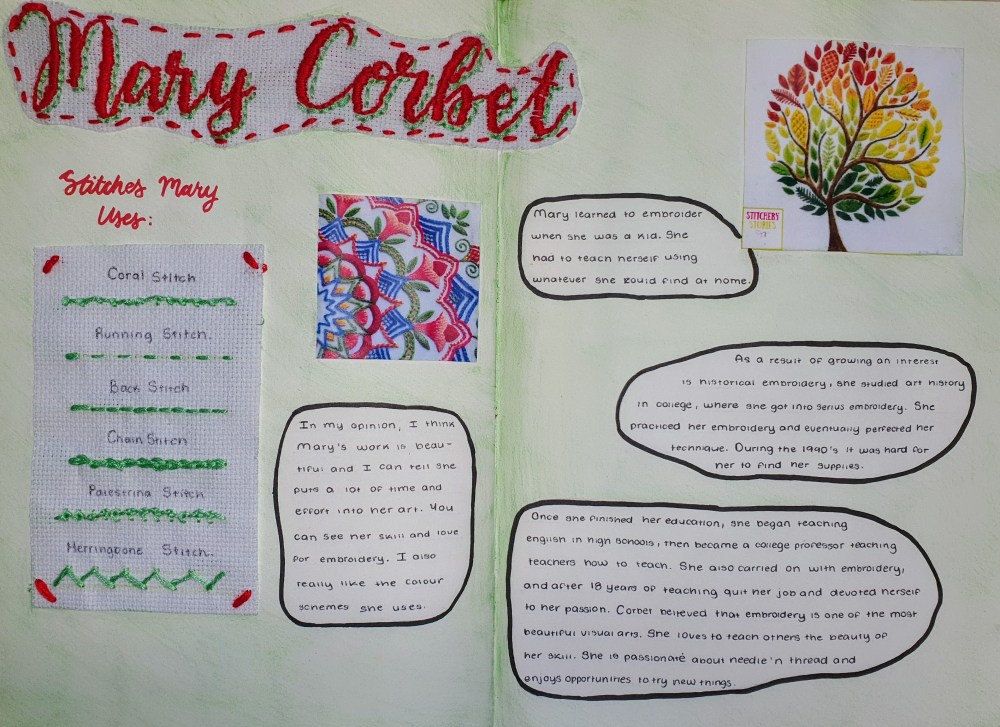 Mary Corbet
Stitches Mary
Uses:
Coral Stitch
Running Stitch.
Back Stitch
Chain Stitch
Palestrina Stitch
Herringbone Stitch.
In my opinion, I think
Mary's work is beau-
tiful and I can tell she
puts a lot of time and
effort into her art. You
can see her skill and love
for embroidery. I also
really like the colour
schemes she uses.
STITCHERY
STORIES
Mary learned to embroider
when she was a kid. She
had to teach herself using
whatever she could find at home.
As a result of growing an interest
is historical embroidery, she studied art history
in college, where she got into serius embroidery. She
practiced her embroidery and eventually perfected her
technique. During the 1990's it was hard for
her to find her supplies.
Once she finished her education, she began teaching
english in high schools, then became a college professor teaching
teachers how to teach. She also carried on with embroidery,
and after 18 years of teaching quit her job and devoted herself
to her passion. Corbet believed that embroidery is one of the most
beautiful visual arts. She loves to teach others the beauty of
her skill. She is passionate about needle'n thread and
enjoys opportunities to try new things.